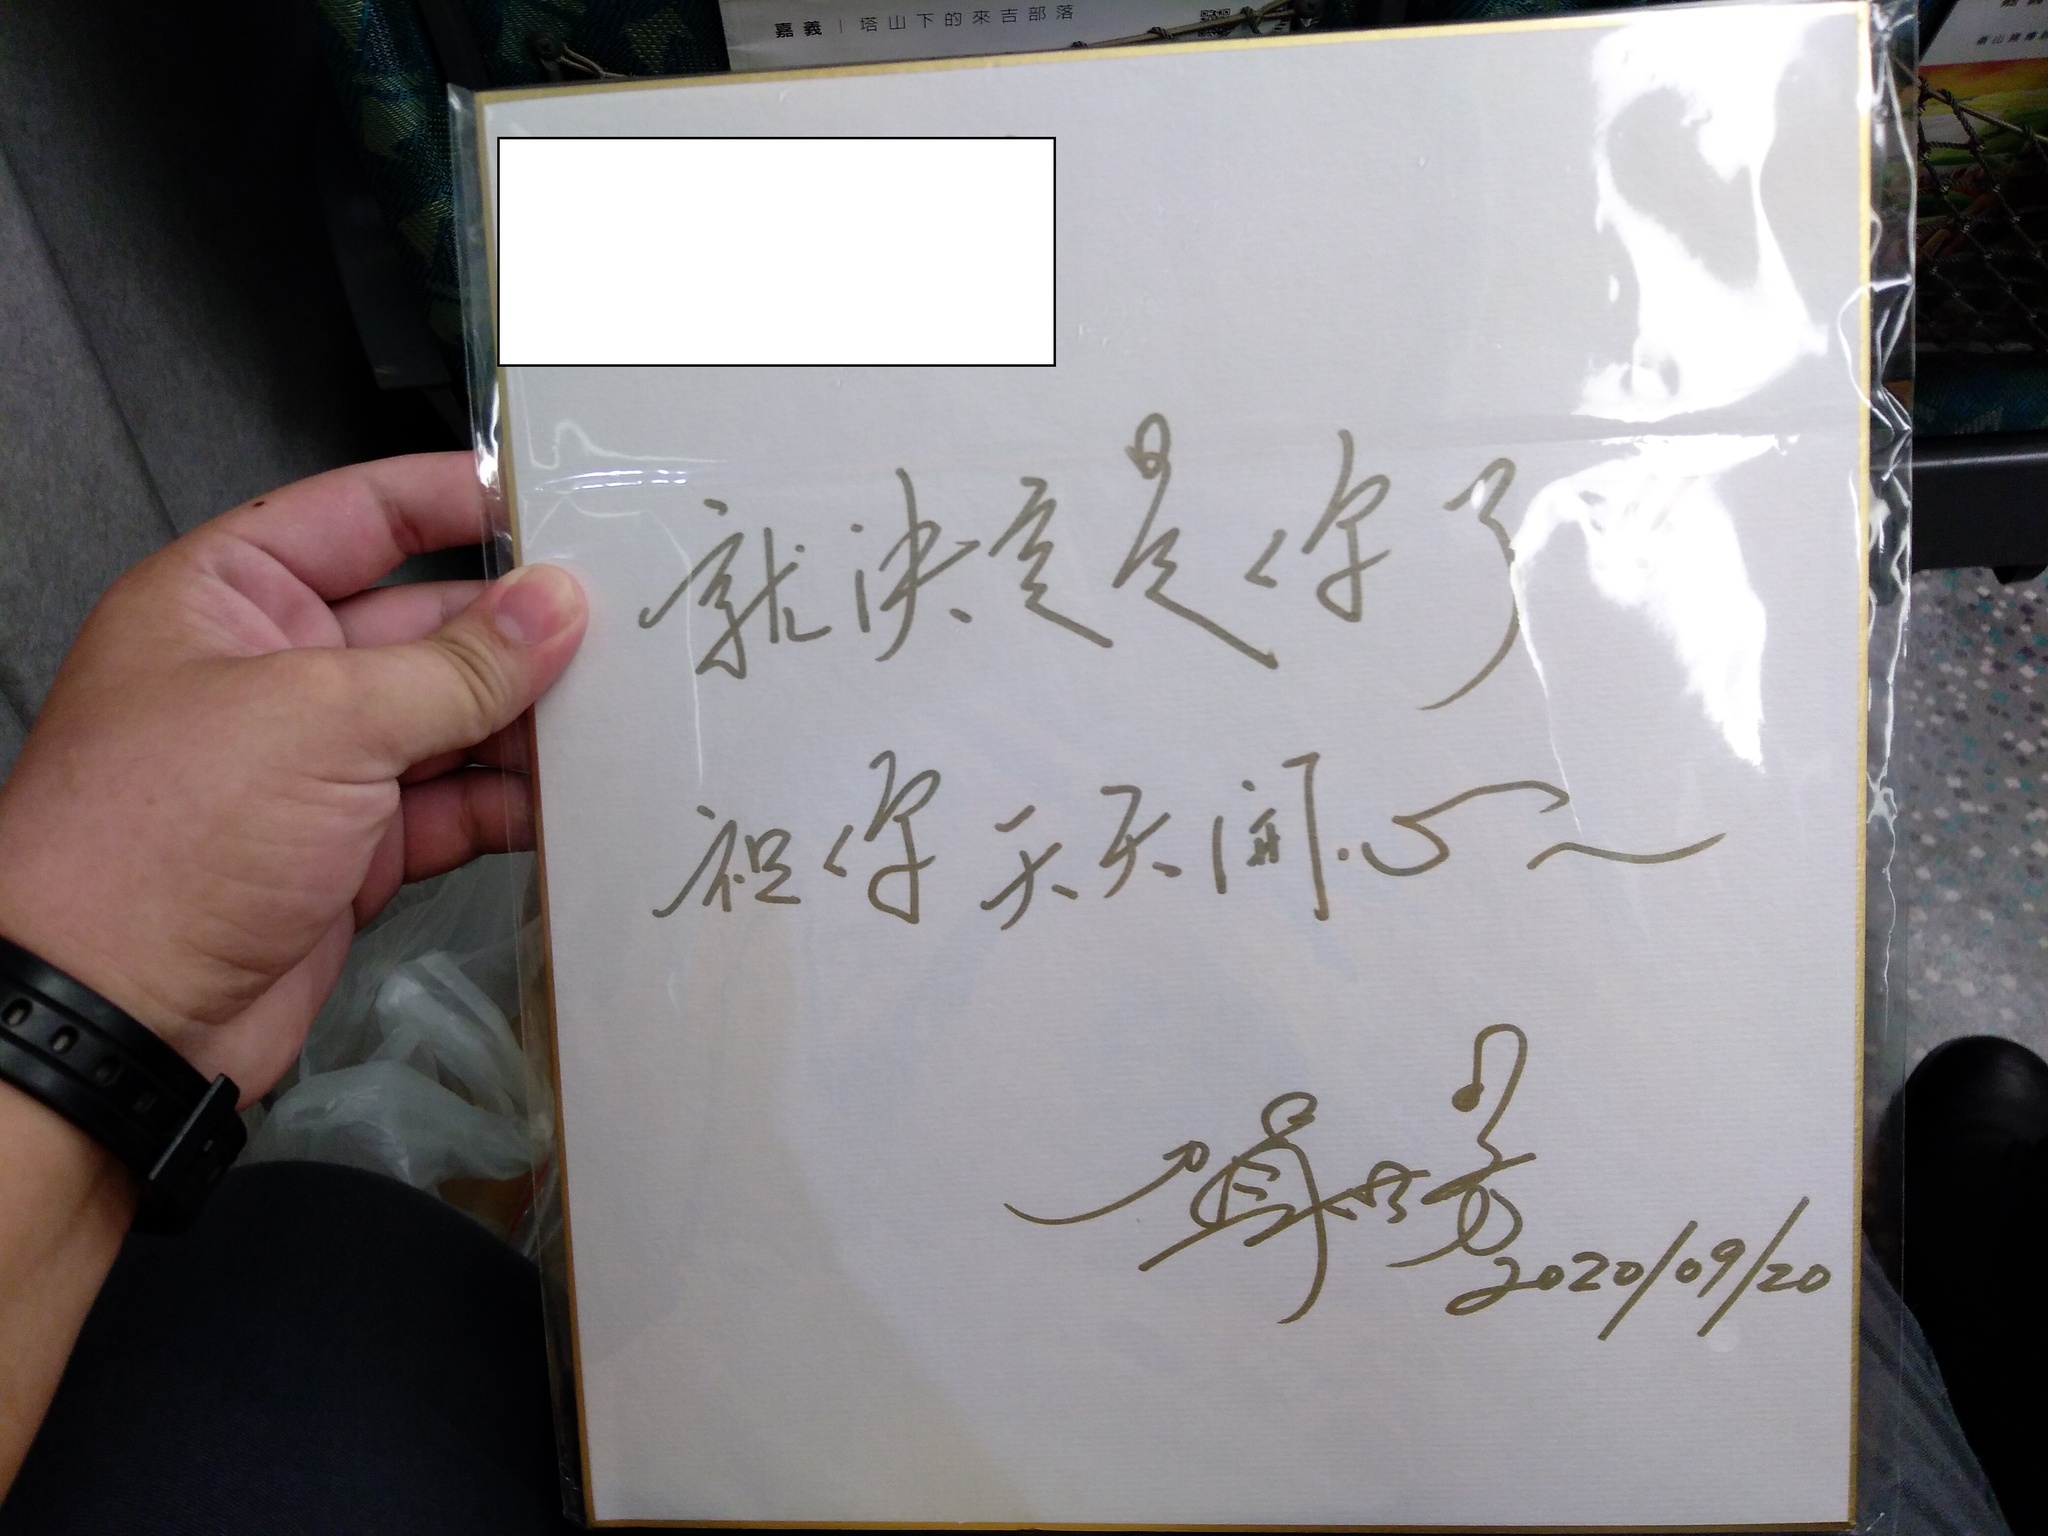 嘉義｜塔山下的來吉部落
就決定是你了
祝你天天開心～
2020/09/20